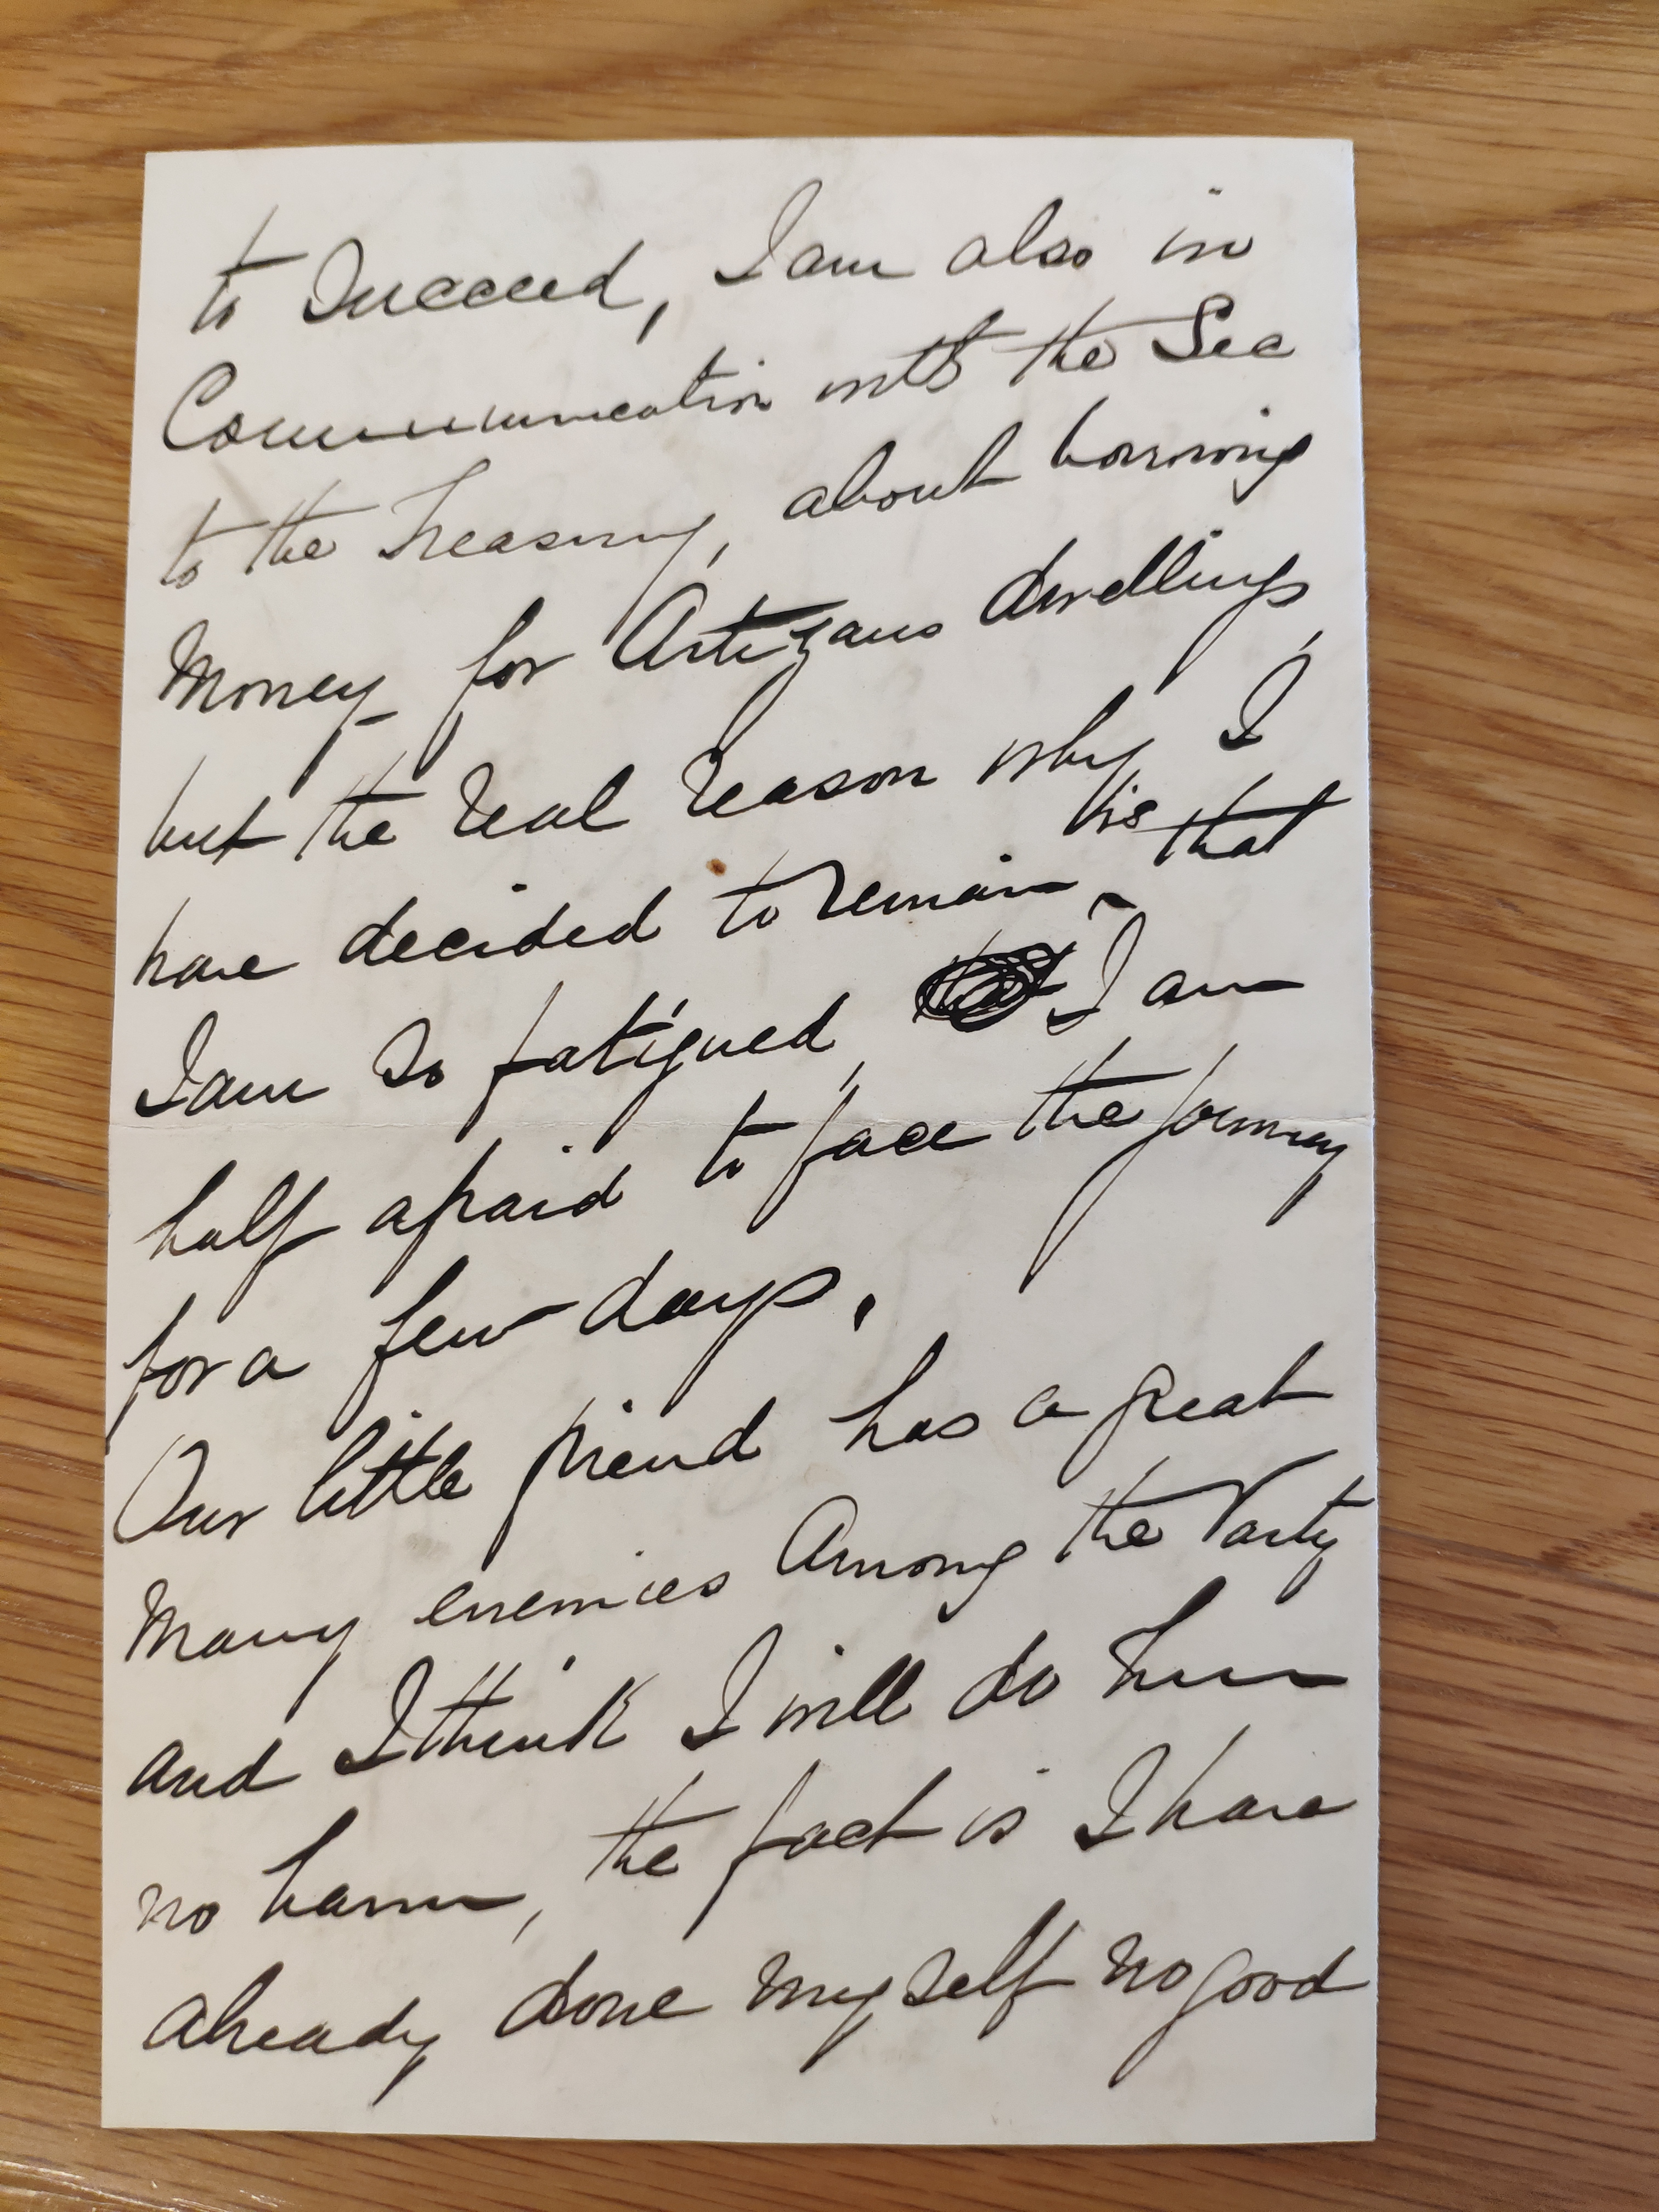 to Succeed, I am also in
Communication with the Sec
to the Treasury, about borrowing
Money for Artizans dwellings,
but the real reason why I
have decided to remain is that
I am so fatigued, I am
half afraid to face the journey
for a few days.
Our little friend has a great
Many enemies Among the Party
and I think I will do him
no harm, the fact is I have
already done myself no good